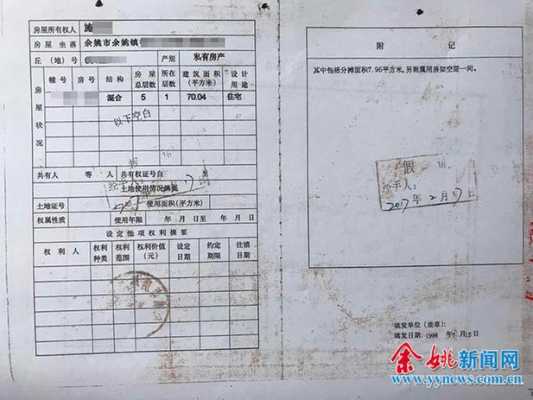 房屋所有权人 施
房屋坐落 余姚市余姚镇
丘（地）号 产别 私有房产
房屋状况
幢号 房号 结构 房屋总层数 所在层数 建筑面积（平方米） 设计用途
混合 5 1 70.04 住宅
以下空白
共有人 等 人 共有权证号自 至
土地使用情况摘要
土地证号 使用面积（平方米）
权属性质 使用年限 年 月 日至 年 月 日
设定他项权利摘要
权利人 权利种类 权利范围 权利价值（元） 设定日期 约定期限 注销日期
附 记
其中包括分摊面积7.96平方米,另附属用房架空层一间。
假
经手人:
2017年2月17日
填发单位（盖章）:
填发日期:1998年 月15日
余姚新闻网
www.yynews.com.cn